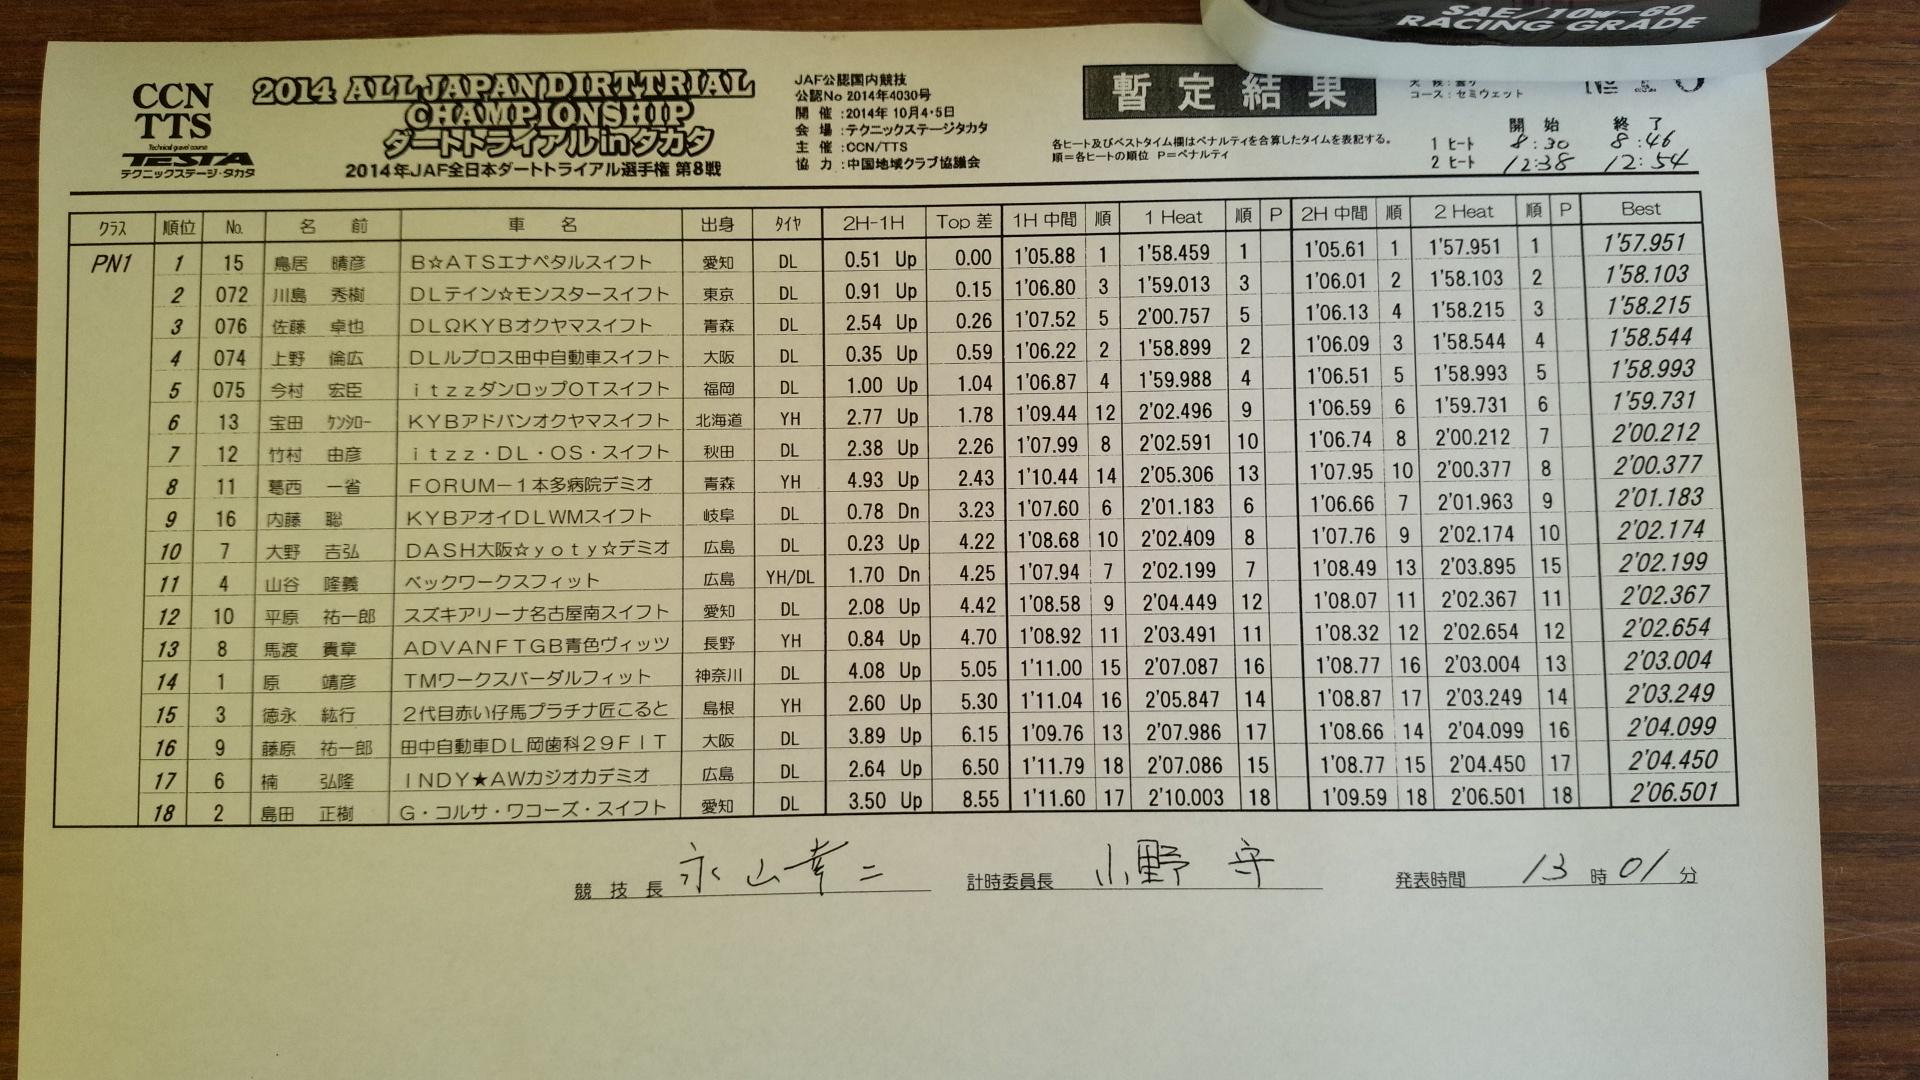 SAE/10w-60
RACING GRADE
CCN
TTS
Technical gravel course
TESTA
テクニックステージ・タカタ
2014 ALL JAPAN DIRT TRIAL
CHAMPIONSHIP
ダートトライアル in タカタ
2014年JAF全日本ダートトライアル選手権 第8戦
JAF公認国内競技
公認No 2014年4030号
開 催 :2014年 10月4・5日
会 場 :テクニックステージタカタ
主 催 :CCN/TTS
協 力 :中国地域クラブ協議会
暫定結果
各ヒート及びベストタイム欄はペナルティを合算したタイムを表記する。
順=各ヒートの順位 P=ペナルティ
コース:セミウェット
開 始 終 了
1 ヒート 8:30 8:46
2 ヒート 12:38 12:54
クラス 順位 No. 名 前 車 名 出身 タイヤ 2H-1H Top 差 1H 中間 順 1 Heat 順 P 2H 中間 順 2 Heat 順 P Best
PN1 1 15 鳥居 晴彦 B☆ATSエナペタルスイフト 愛知 DL 0.51 Up 0.00 1'05.88 1 1'58.459 1 1'05.61 1 1'57.951 1 1'57.951
2 072 川島 秀樹 DLテイン☆モンスタースイフト 東京 DL 0.91 Up 0.15 1'06.80 3 1'59.013 3 1'06.01 2 1'58.103 2 1'58.103
3 076 佐藤 卓也 DLΩKYBオクヤマスイフト 青森 DL 2.54 Up 0.26 1'07.52 5 2'00.757 5 1'06.13 4 1'58.215 3 1'58.215
4 074 上野 倫広 DLルブロス田中自動車スイフト 大阪 DL 0.35 Up 0.59 1'06.22 2 1'58.899 2 1'06.09 3 1'58.544 4 1'58.544
5 075 今村 宏臣 itzzダンロップOTスイフト 福岡 DL 1.00 Up 1.04 1'06.87 4 1'59.988 4 1'06.51 5 1'58.993 5 1'58.993
6 13 宝田 ケンシロー KYBアドバンオクヤマスイフト 北海道 YH 2.77 Up 1.78 1'09.44 12 2'02.496 9 1'06.59 6 1'59.731 6 1'59.731
7 12 竹村 由彦 itzz・DL・OS・スイフト 秋田 DL 2.38 Up 2.26 1'07.99 8 2'02.591 10 1'06.74 8 2'00.212 7 2'00.212
8 11 葛西 一省 FORUM-1本多病院デミオ 青森 YH 4.93 Up 2.43 1'10.44 14 2'05.306 13 1'07.95 10 2'00.377 8 2'00.377
9 16 内藤 聡 KYBアオイDLWMスイフト 岐阜 DL 0.78 Dn 3.23 1'07.60 6 2'01.183 6 1'06.66 7 2'01.963 9 2'01.183
10 7 大野 吉弘 DASH大阪☆yoty☆デミオ 広島 DL 0.23 Up 4.22 1'08.68 10 2'02.409 8 1'07.76 9 2'02.174 10 2'02.174
11 4 山谷 隆義 ベックワークスフィット 広島 YH/DL 1.70 Dn 4.25 1'07.94 7 2'02.199 7 1'08.49 13 2'03.895 15 2'02.199
12 10 平原 祐一郎 スズキアリーナ名古屋南スイフト 愛知 DL 2.08 Up 4.42 1'08.58 9 2'04.449 12 1'08.07 11 2'02.367 11 2'02.367
13 8 馬渡 貴章 ADVANFTGB青色ヴィッツ 長野 YH 0.84 Up 4.70 1'08.92 11 2'03.491 11 1'08.32 12 2'02.654 12 2'02.654
14 1 原 靖彦 TMワークスバーダルフィット 神奈川 DL 4.08 Up 5.05 1'11.00 15 2'07.087 16 1'08.77 16 2'03.004 13 2'03.004
15 3 徳永 紘行 2代目赤い仔馬プラチナ匠こると 島根 YH 2.60 Up 5.30 1'11.04 16 2'05.847 14 1'08.87 17 2'03.249 14 2'03.249
16 9 藤原 祐一郎 田中自動車DL岡歯科29FIT 大阪 DL 3.89 Up 6.15 1'09.76 13 2'07.986 17 1'08.66 14 2'04.099 16 2'04.099
17 6 楠 弘隆 INDY★AWカジオカデミオ 広島 DL 2.64 Up 6.50 1'11.79 18 2'07.086 15 1'08.77 15 2'04.450 17 2'04.450
18 2 島田 正樹 G・コルサ・ワコーズ・スイフト 愛知 DL 3.50 Up 8.55 1'11.60 17 2'10.003 18 1'09.59 18 2'06.501 18 2'06.501
競 技 長 永山幸二 計時委員長 小野 守 発表時間 13 時 01 分